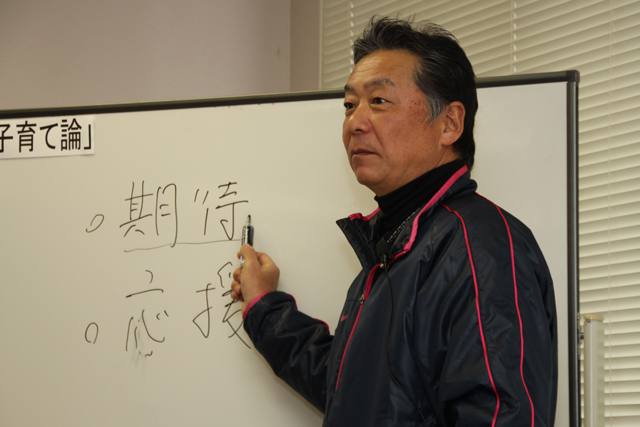 子育て論」
○ 期待
○ 応援